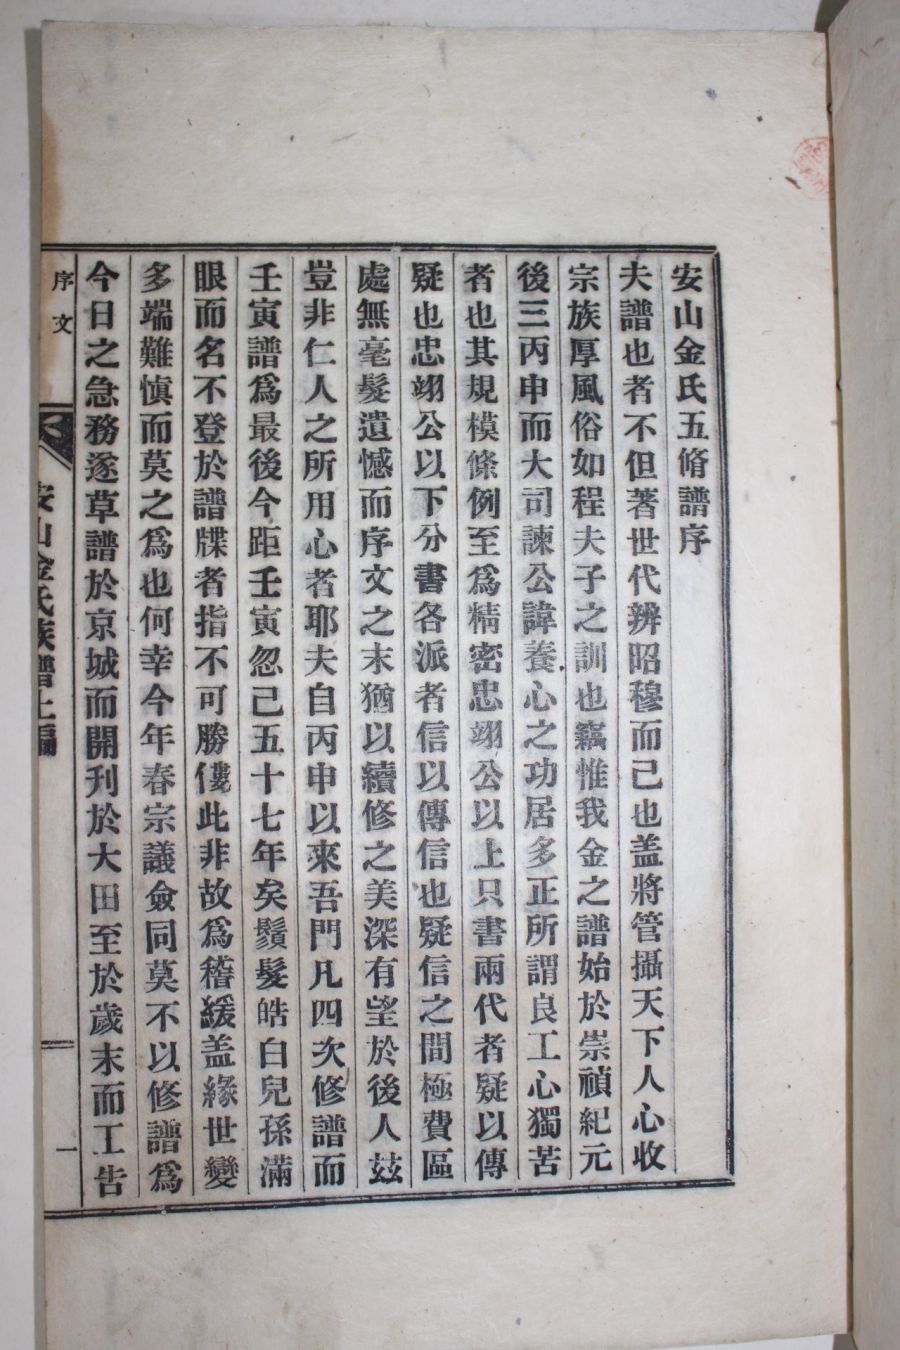 安山金氏五脩譜序
夫譜也者不但著世代辨昭穆而己也盖將管攝天下人心收
宗族厚風俗如程夫子之訓也竊惟我金之譜始於崇禎紀元
後三丙申而大司諫公諱養心之功居多正所謂良工心獨苦
者也其規模條例至爲精密忠翊公以上只書兩代者疑以傳
疑也忠翊公以下分書各派者信以傳信也疑信之間極費區
處無毫髮遺憾而序文之末猶以續修之美深有望於後人玆
豈非仁人之所用心者耶夫自丙申以來吾門凡四次修譜而
壬寅譜爲最後今距壬寅忽己五十七年矣鬚髮皓白兒孫滿
眼而名不登於譜牒者指不可勝僂此非故爲稽緩盖緣世變
多端難愼而莫之爲也何幸今年春宗議僉同莫不以修譜爲
今日之急務遂草譜於京城而開刋於大田至於歲末而工告
序文
安山金氏族譜上編
一